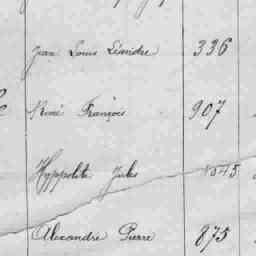 Jean Louis Léandre 336
René François 907
Hyppolite Jules 1045
Alexandre Pierre 875